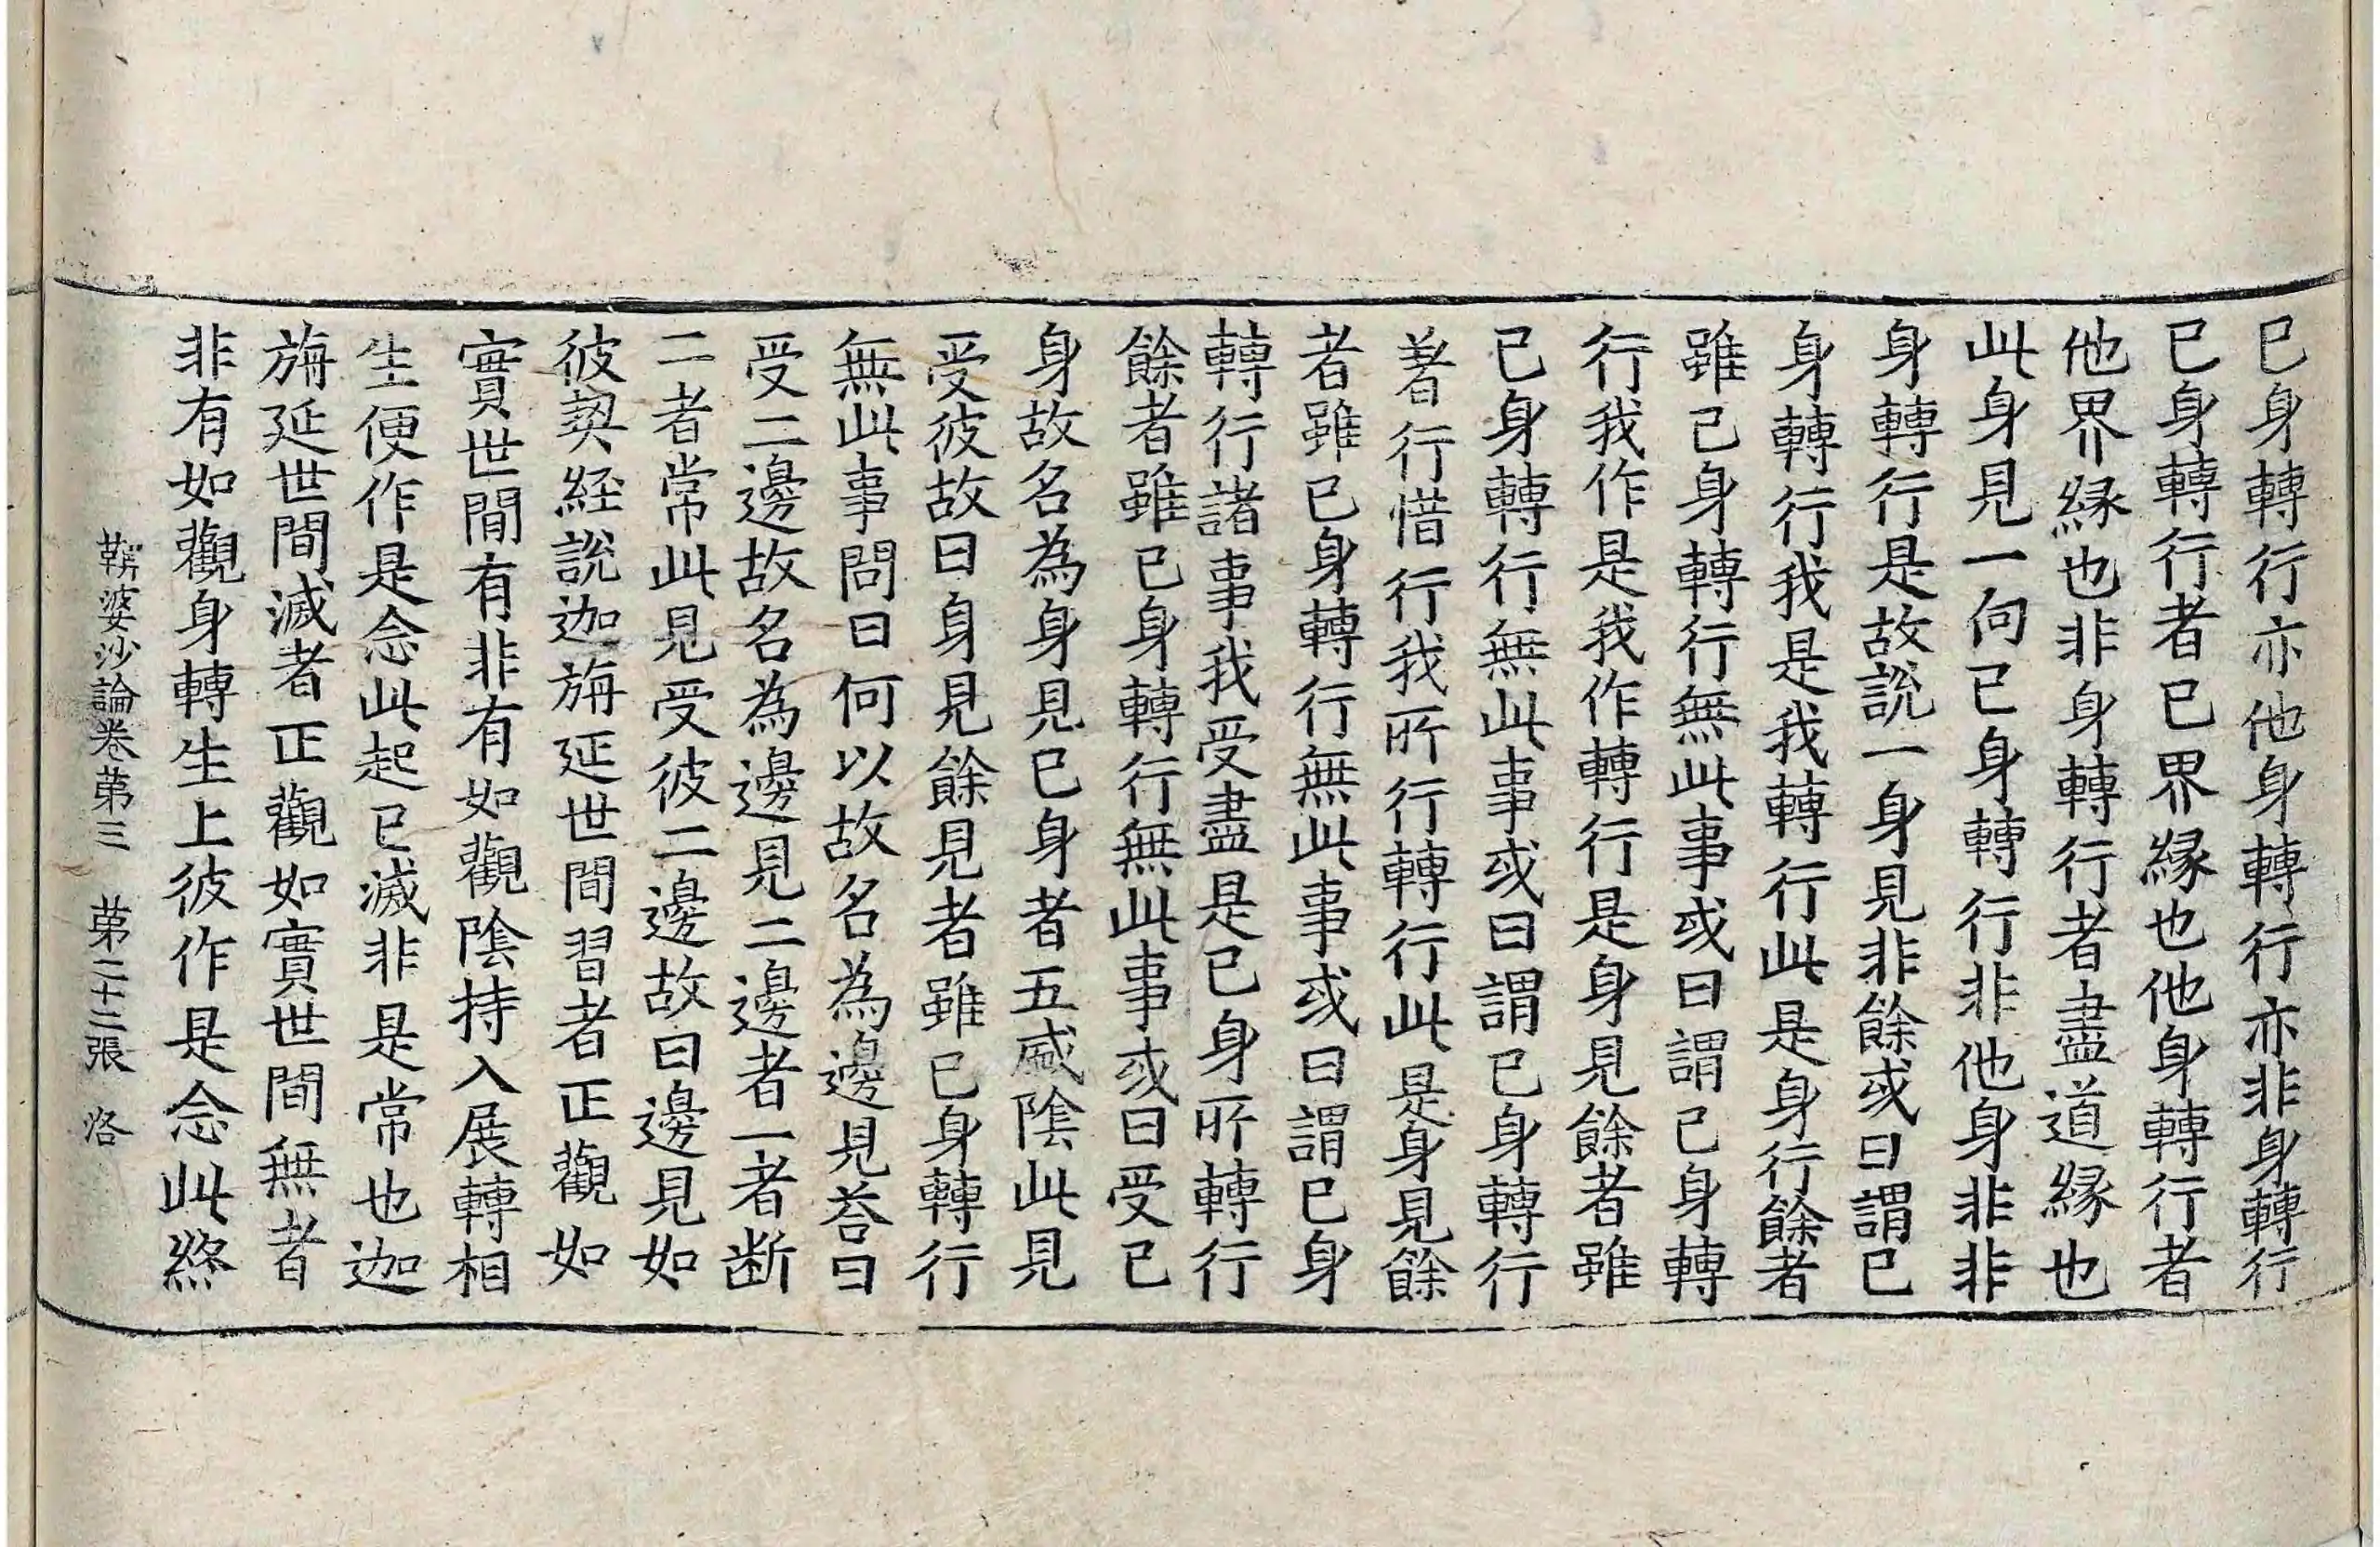 已身轉行亦他身轉行亦非身轉行
已身轉行者已界縁也他身轉行者
他界縁也非身轉行者盡道縁也
此身見一向已身轉行非他身非非
身轉行是故說一身見非餘或曰謂已
身轉行我是我轉行此是身行餘者
雖已身轉行無此事或曰謂已身轉
行我作是我作轉行是身見餘者雖
已身轉行無此事或曰謂已身轉行
著行惜行我所行轉行此是身見餘
者雖已身轉行無此事或曰謂已身
轉行諸事我受盡是已身所轉行
餘者雖已身轉行無此事或曰受已
身故名為身見已身者五盛陰此見
受彼故曰身見餘見者雖已身轉行
無此事問曰何以故名為邊見荅曰
受二邊故名為邊見二邊者一者断
二者常此見受彼二邊故曰邊見如
彼契經說迦旃延世間習者正觀如
實世間有非有如觀陰持入展轉相
生便作是念此起已滅非是常也迦
旃延世間滅者正觀如實世間無者
非有如觀身轉生上彼作是念此終
鞞婆沙論卷第三　第二十二張　洛